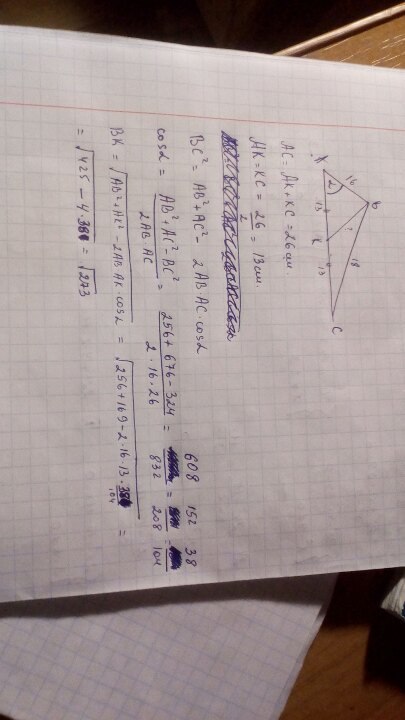 A
16
B
α
13
K
13
?
18
C
AC = AK + KC = 26 см.
AK = KC = 26/2 = 13 см.
BC² = AB² + AC² - 2AB·AC·cosα
cosα = (AB² + AC² - BC²)/(2AB·AC) = (256 + 676 - 324)/(2·16·26) = 608/832 = 152/208 = 38/104
BK = √(AB² + AK² - 2AB·AK·cosα) = √(256 + 169 - 2·16·13·38/104) =
= √(425 - 4·38) = √273